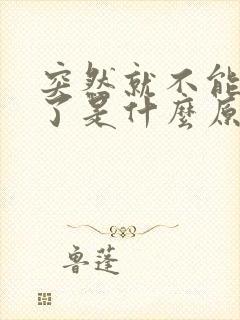 突然就不能
了是什麼原
魯蓬